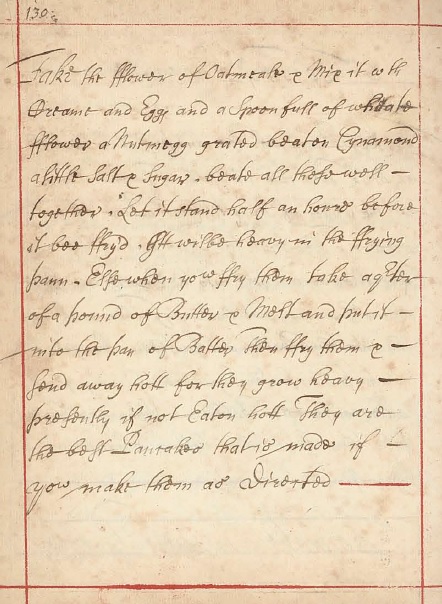 130
Take the fflower of Oatmeale & Mix it wth
Creame and Eggs and a Spoonfull of wheate
fflower a Nutmegg grated beaten Cynamond
a little Salt & Sugar. beate all these well —
together. Let it stand half an houre before
it bee ffryd. Itt wilbe heavy in the ffrying
pann. Else when yow ffry them take a qter
of a pound of Butter & Melt and put it —
into the pan of Batter Then ffry them & —
send away hott for they grow heavy —
presently if not Eaton hott They are
the best Pancakes that is made if —
yow make them as Directed —